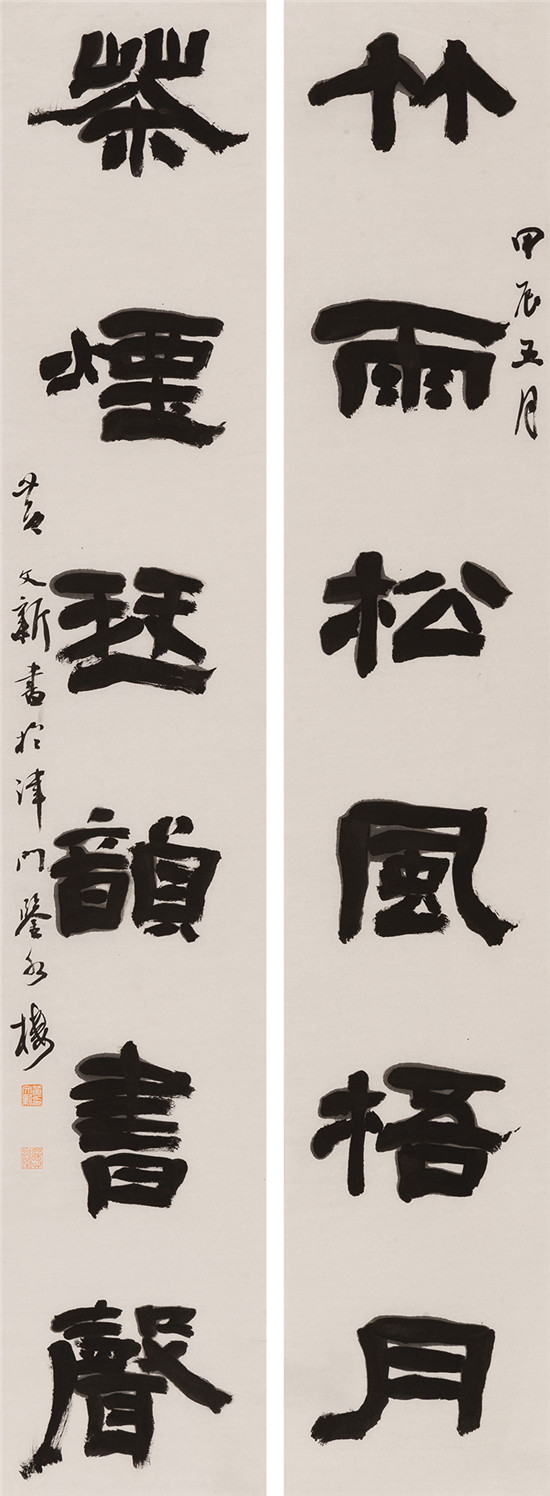 竹雨松風梧月
甲辰五月
茶煙琹韻書聲
黄文新書於津門鑒水樓